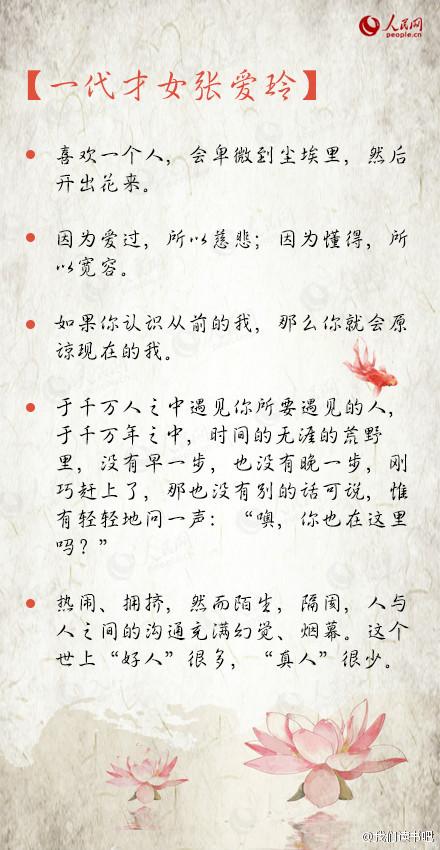 人民网
people.cn
【一代才女张爱玲】
喜欢一个人，会卑微到尘埃里，然后
开出花来。
因为爱过，所以慈悲；因为懂得，所
以宽容。
如果你认识从前的我，那么你就会原
谅现在的我。
于千万人之中遇见你所要遇见的人，
于千万年之中，时间的无涯的荒野
里，没有早一步，也没有晚一步，刚
巧赶上了，那也没有别的话可说，惟
有轻轻地问一声：“噢，你也在这里
吗？”
热闹、拥挤，然而陌生，隔阂，人与
人之间的沟通充满幻觉、烟幕。这个
世上“好人”很多，“真人”很少。
@我们读书吧